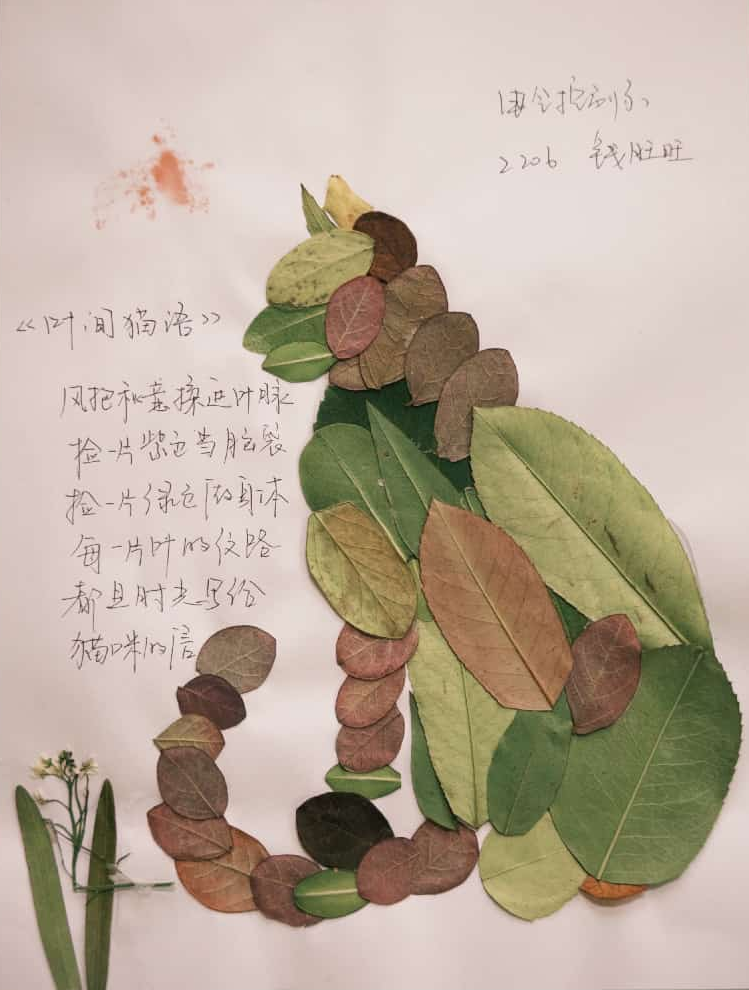 2206 钱旺旺
《叶间猫语》
风把秋意揉进叶脉
捡一片紫色当脸裳
捡一片绿色做身体
每一片叶的纹路
都是时光写给
猫咪的信